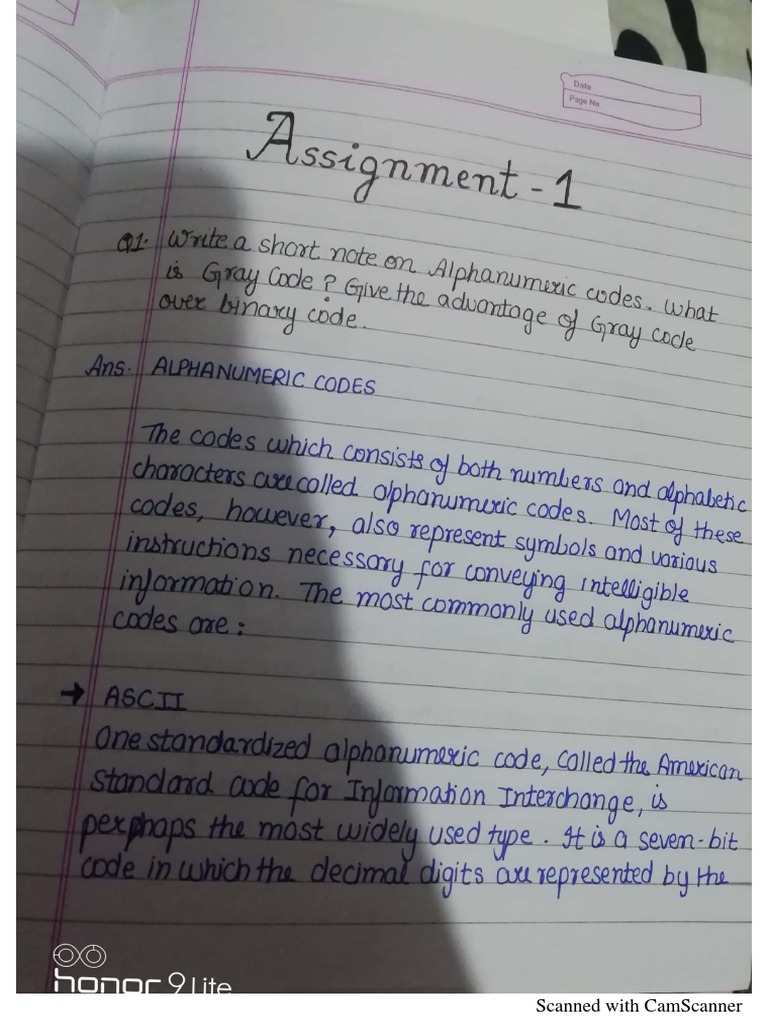 Date
Page No
Assignment - 1
Q1. Write a short note on Alphanumeric codes. What
is Gray Code? Give the advantage of Gray code
over binary code.
Ans. ALPHANUMERIC CODES
The codes which consists of both numbers and alphabetic
characters are called alphanumeric codes. Most of these
codes, however, also represent symbols and various
instructions necessary for conveying intelligible
information. The most commonly used alphanumeric
codes are:
→ ASCII
One standardized alphanumeric code, called the American
Standard code for Information Interchange, is
perphaps the most widely used type. It is a seven-bit
code in which the decimal digits are represented by the
honor 9 Lite
Scanned with CamScanner